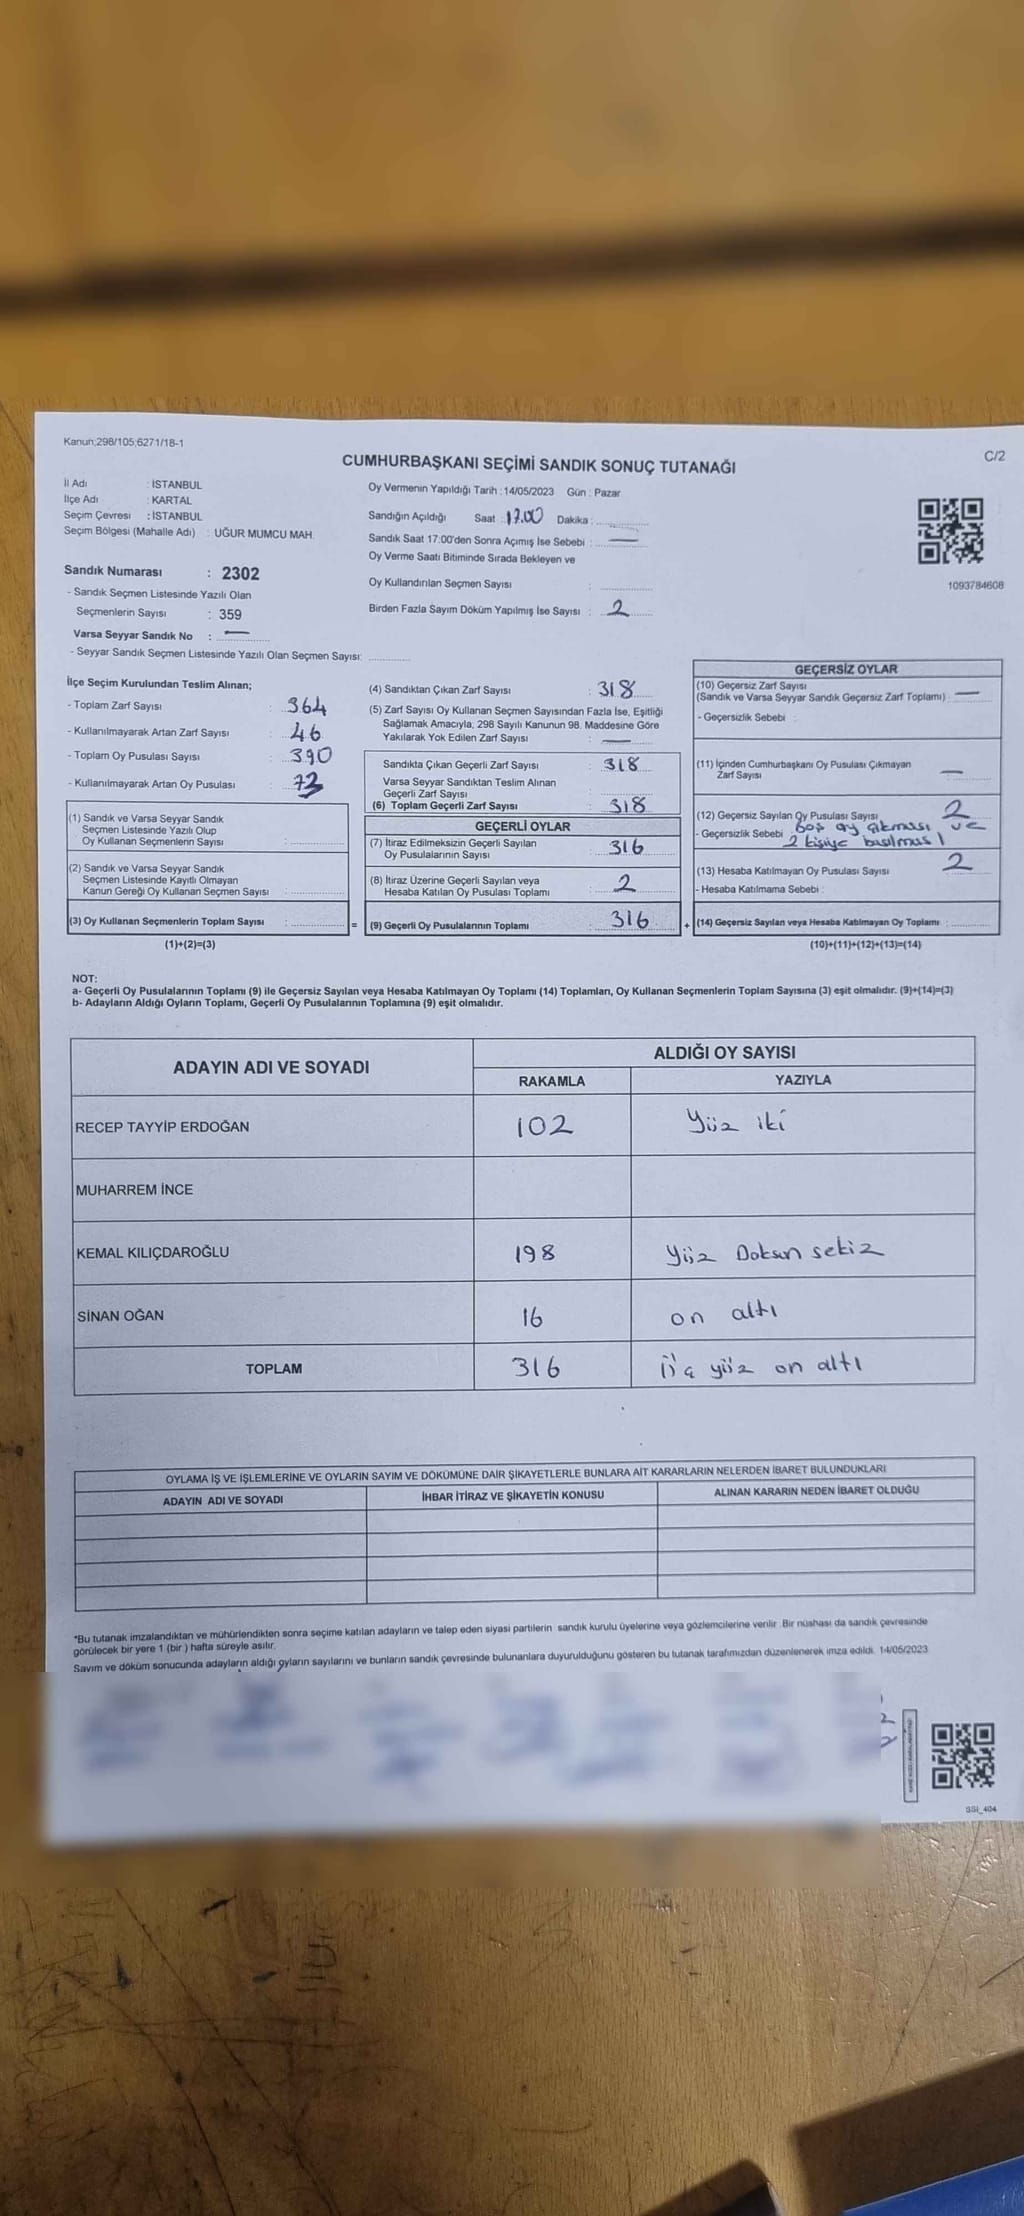 Kanun;298/105;6271/18-1
C/2
CUMHURBAŞKANI SEÇİMİ SANDIK SONUÇ TUTANAĞI
İl Adı : İSTANBUL
İlçe Adı : KARTAL
Seçim Çevresi : İSTANBUL
Seçim Bölgesi (Mahalle Adı) : UĞUR MUMCU MAH.
Sandık Numarası : 2302
- Sandık Seçmen Listesinde Yazılı Olan
Seçmenlerin Sayısı : 359
Varsa Seyyar Sandık No : —
- Seyyar Sandık Seçmen Listesinde Yazılı Olan Seçmen Sayısı:
Oy Vermenin Yapıldığı Tarih : 14/05/2023 Gün : Pazar
Sandığın Açıldığı Saat : 17.00 Dakika :
Sandık Saat 17:00'den Sonra Açımış İse Sebebi : —
Oy Verme Saati Bitiminde Sırada Bekleyen ve
Oy Kullandırılan Seçmen Sayısı :
Birden Fazla Sayım Döküm Yapılmış İse Sayısı : 2
1093784608
İlçe Seçim Kurulundan Teslim Alınan;
- Toplam Zarf Sayısı : 364
- Kullanılmayarak Artan Zarf Sayısı : 46
- Toplam Oy Pusulası Sayısı : 390
- Kullanılmayarak Artan Oy Pusulası : 73
(1) Sandık ve Varsa Seyyar Sandık
Seçmen Listesinde Yazılı Olup
Oy Kullanan Seçmenlerin Sayısı :
(2) Sandık ve Varsa Seyyar Sandık
Seçmen Listesinde Kayıtlı Olmayan
Kanun Gereği Oy Kullanan Seçmen Sayısı :
(3) Oy Kullanan Seçmenlerin Toplam Sayısı : =
(1)+(2)=(3)
(4) Sandıktan Çıkan Zarf Sayısı : 318
(5) Zarf Sayısı Oy Kullanan Seçmen Sayısından Fazla İse, Eşitliği
Sağlamak Amacıyla; 298 Sayılı Kanunun 98. Maddesine Göre
Yakılarak Yok Edilen Zarf Sayısı : —
Sandıkta Çıkan Geçerli Zarf Sayısı : 318
Varsa Seyyar Sandıktan Teslim Alınan
Geçerli Zarf Sayısı :
(6) Toplam Geçerli Zarf Sayısı : 318
GEÇERLİ OYLAR
(7) İtiraz Edilmeksizin Geçerli Sayılan
Oy Pusulalarının Sayısı : 316
(8) İtiraz Üzerine Geçerli Sayılan veya
Hesaba Katılan Oy Pusulası Toplamı : 2
(9) Geçerli Oy Pusulalarının Toplamı : 316 +
GEÇERSİZ OYLAR
(10) Geçersiz Zarf Sayısı
(Sandık ve Varsa Seyyar Sandık Geçersiz Zarf Toplamı) : —
- Geçersizlik Sebebi :
(11) İçinden Cumhurbaşkanı Oy Pusulası Çıkmayan
Zarf Sayısı : —
(12) Geçersiz Sayılan Oy Pusulası Sayısı : 2
- Geçersizlik Sebebi : boş oy çıkması ve
2 kişiye basılması
(13) Hesaba Katılmayan Oy Pusulası Sayısı : 2
- Hesaba Katılmama Sebebi :
(14) Geçersiz Sayılan veya Hesaba Katılmayan Oy Toplamı :
(10)+(11)+(12)+(13)=(14)
NOT:
a- Geçerli Oy Pusulalarının Toplamı (9) ile Geçersiz Sayılan veya Hesaba Katılmayan Oy Toplamı (14) Toplamları, Oy Kullanan Seçmenlerin Toplam Sayısına (3) eşit olmalıdır. (9)+(14)=(3)
b- Adayların Aldığı Oyların Toplamı, Geçerli Oy Pusulalarının Toplamına (9) eşit olmalıdır.
ADAYIN ADI VE SOYADI
ALDIĞI OY SAYISI
RAKAMLA YAZIYLA
RECEP TAYYİP ERDOĞAN 102 Yüz iki
MUHARREM İNCE
KEMAL KILIÇDAROĞLU 198 Yüz Doksan sekiz
SİNAN OĞAN 16 on altı
TOPLAM 316 üç yüz on altı
OYLAMA İŞ VE İŞLEMLERİNE VE OYLARIN SAYIM VE DÖKÜMÜNE DAİR ŞİKAYETLERLE BUNLARA AİT KARARLARIN NELERDEN İBARET BULUNDUKLARI
ADAYIN ADI VE SOYADI İHBAR İTİRAZ VE ŞİKAYETİN KONUSU ALINAN KARARIN NEDEN İBARET OLDUĞU
*Bu tutanak imzalandıktan ve mühürlendikten sonra seçime katılan adayların ve talep eden siyasi partilerin sandık kurulu üyelerine veya gözlemcilerine verilir. Bir nüshası da sandık çevresinde
görülecek bir yere 1 (bir ) hafta süreyle asılır.
Sayım ve döküm sonucunda adayların aldığı oyların sayılarını ve bunların sandık çevresinde bulunanlara duyurulduğunu gösteren bu tutanak tarafımızdan düzenlenerek imza edildi. 14/05/2023
SSI_404